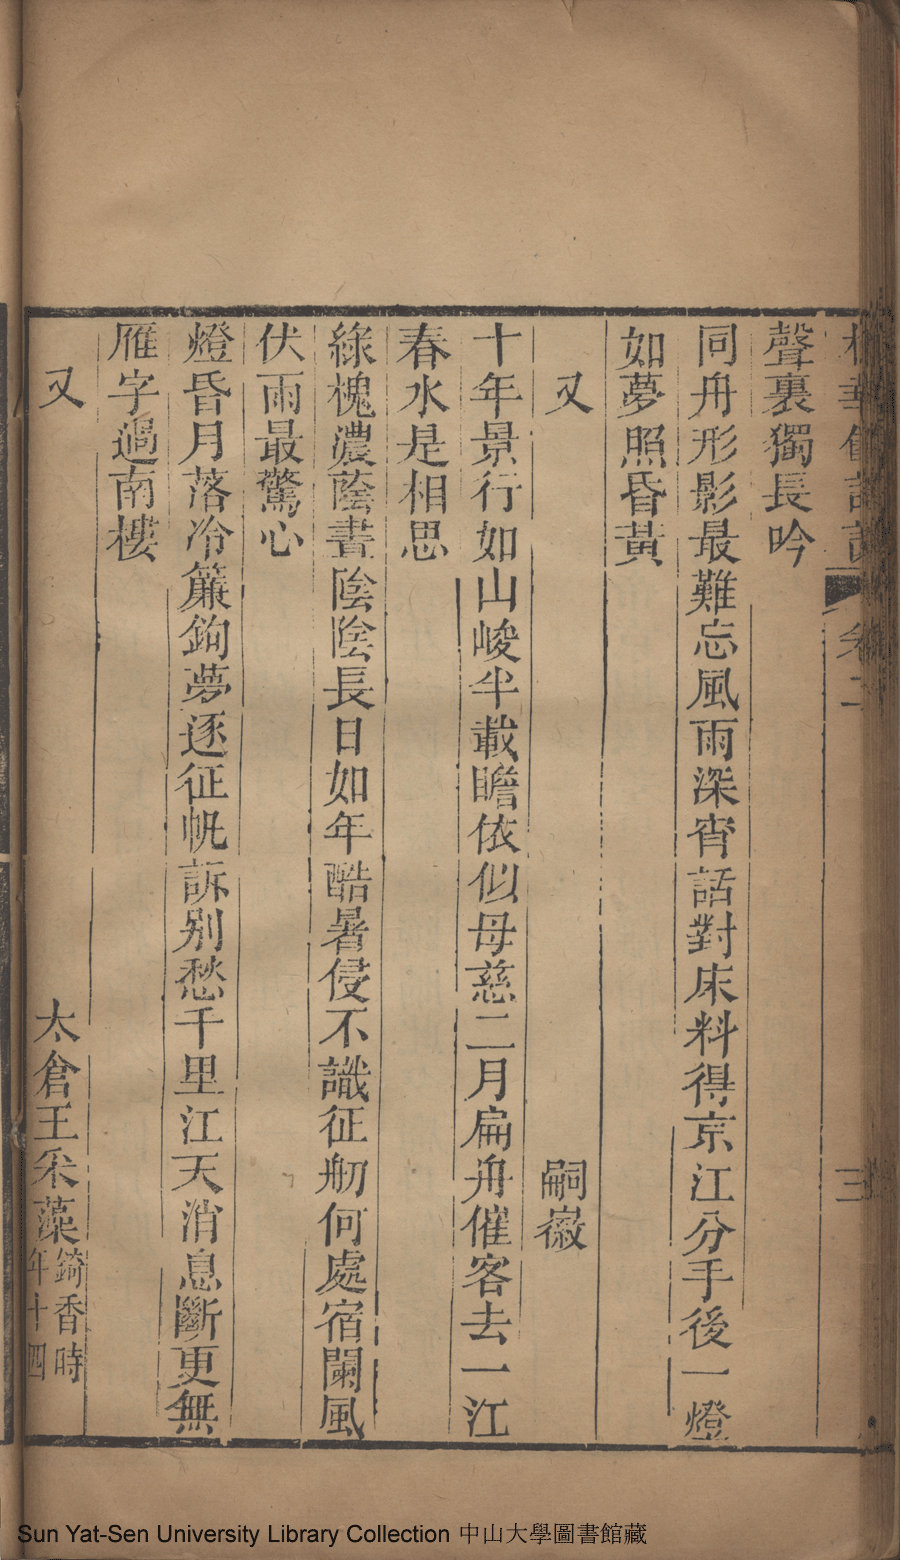 卷二
三
聲裏獨長吟
同舟形影最難忘風雨深宵話對床料得京江分手後一燈
如夢照昏黃
又
嗣徽
十年景行如山峻半載瞻依似母慈二月扁舟催客去一江
春水是相思
綠槐濃蔭晝陰陰長日如年酷暑侵不識征舠何處宿闌風
伏雨最驚心
燈昏月落冷簾鉤夢逐征帆訴別愁千里江天消息斷更無
雁字過南樓
又
太倉王采藻
錡香時
年十四
Sun Yat-Sen University Library Collection 中山大學圖書館藏